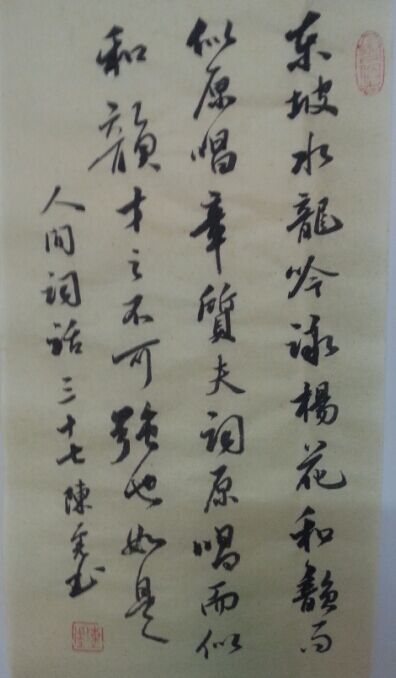 東坡水龍吟詠楊花和韻而
似原唱章質夫詞原唱而似
和韻才之不可強也如是
人間詞話三十七陳書